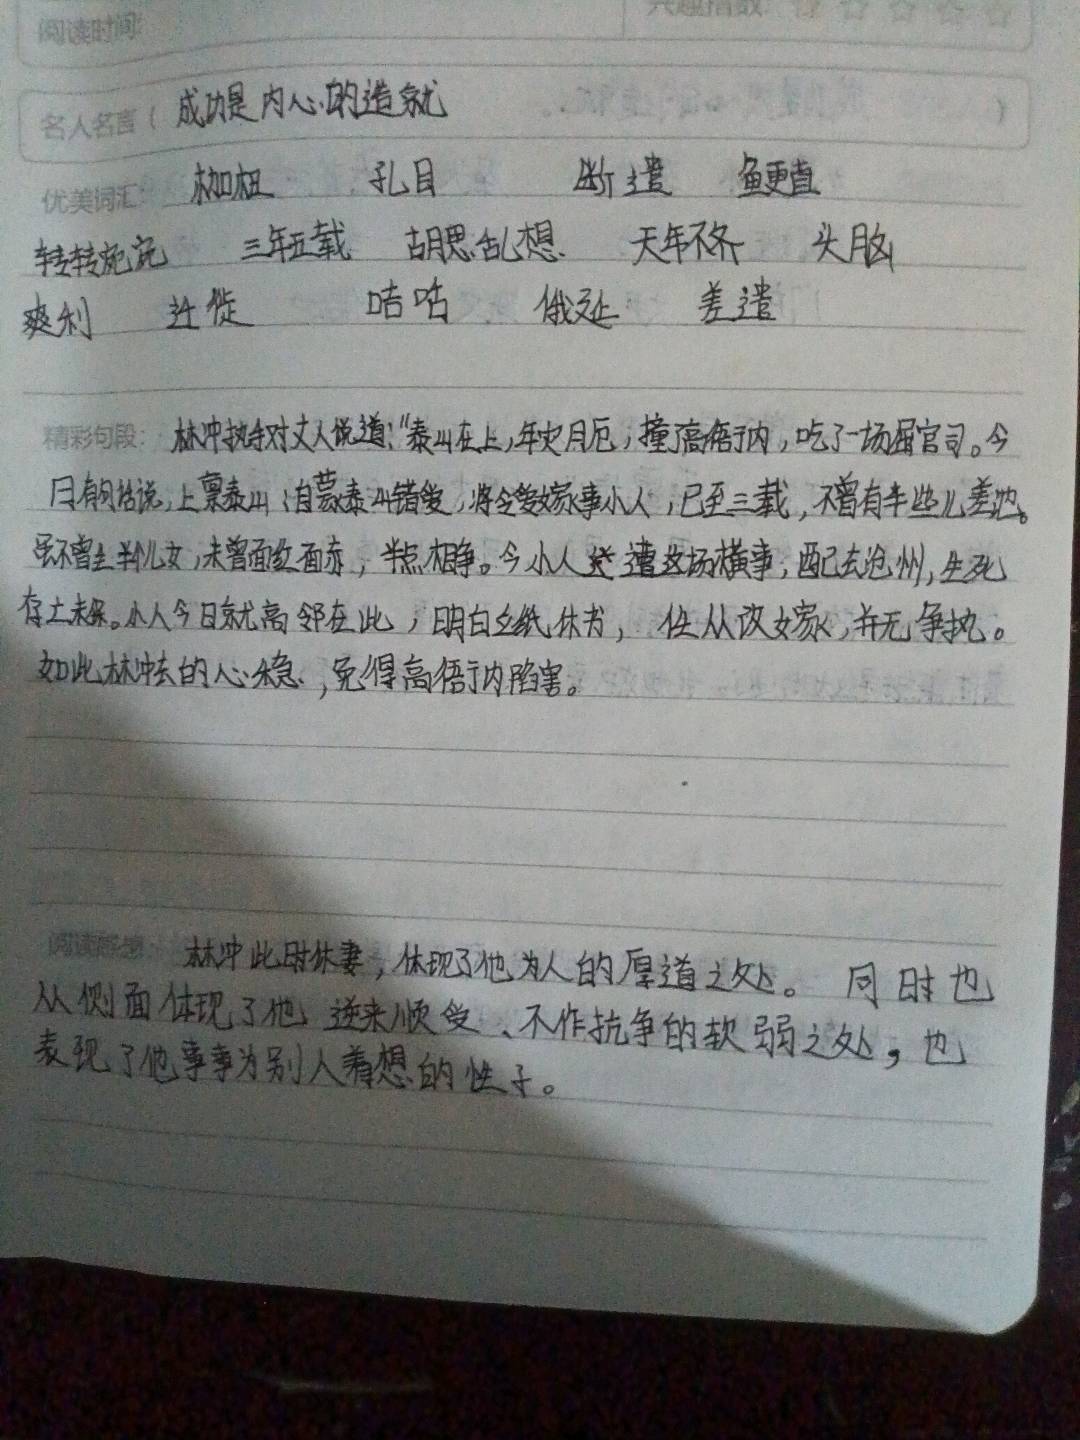 阅读时间: 兴趣指数:
名人名言（ 成功是内心的造就 ）
优美词汇: 枷杻 孔目 断遣 鲠直
转转宛宛 三年五载 胡思乱想 天年不齐 头脑
爽利 迁徙 咭咕 俄延 差遣
精彩句段: 林冲执手对丈人说道："泰山在上,年灾月厄,撞了高衙内,吃了一场屈官司。今
日有句话说,上禀泰山:自蒙泰山错爱,将令爱嫁事小人,已至三载,不曾有半些儿差池。
虽不曾生半个儿女,未曾面红面赤,半点相争。今小人遭这场横事,配去沧州,生死
存亡未保。小人今日就高邻在此,明白立纸休书,任从改嫁,并无争执。
如此林冲去的心稳,免得高衙内陷害。
阅读感想: 林冲此时休妻,体现了他为人的厚道之处。同时也
从侧面体现了他逆来顺受、不作抗争的软弱之处,也
表现了他事事为别人着想的性子。